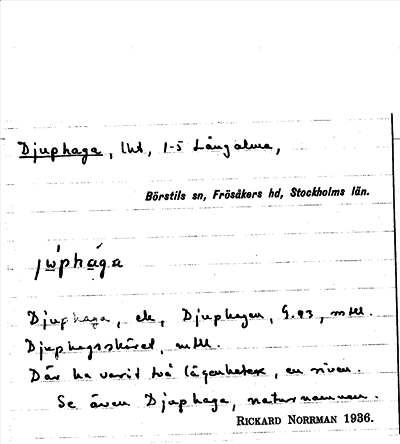 Djuphaga, lht, 1-5 Långalma,
Börstils sn, Frösåkers hd, Stockholms län.
Djuphaga, ek, Djuphagen, G.83, mtll.
Djuphagsskäret, mtll.
Där ha varit två lägenheter, en riven.
Se även Djuphaga, naturnamnen.
RICKARD NORRMAN 1936.